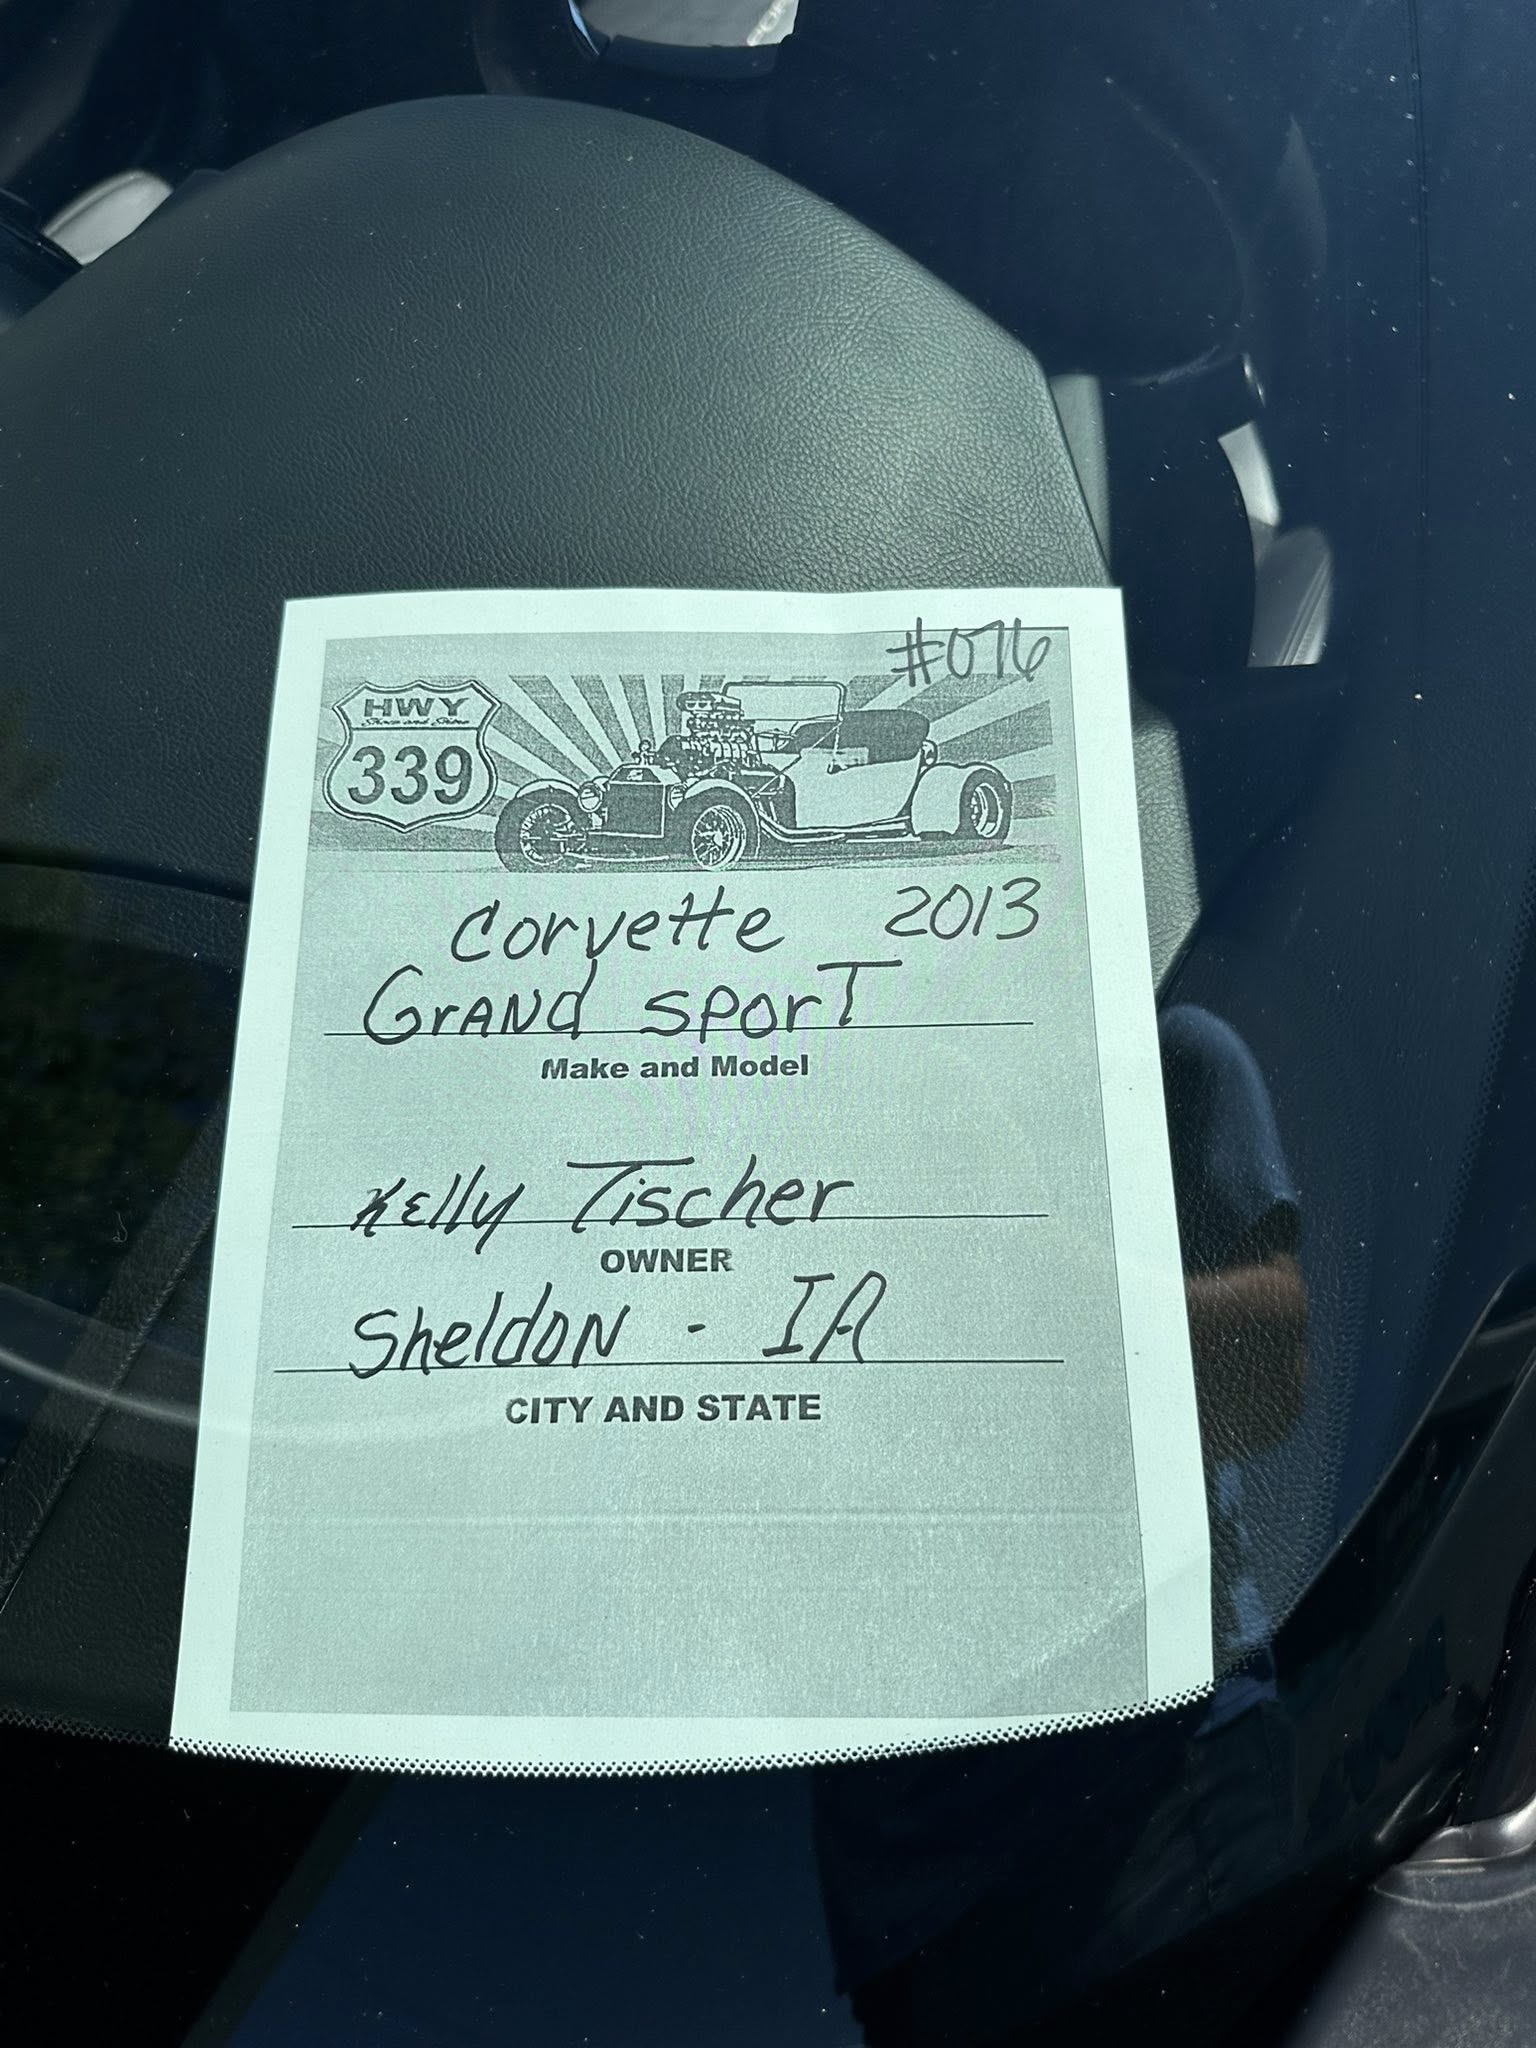 #076
HWY
Show and Shine
339
Corvette 2013
Grand Sport
Make and Model
Kelly Tischer
OWNER
Sheldon - IA
CITY AND STATE